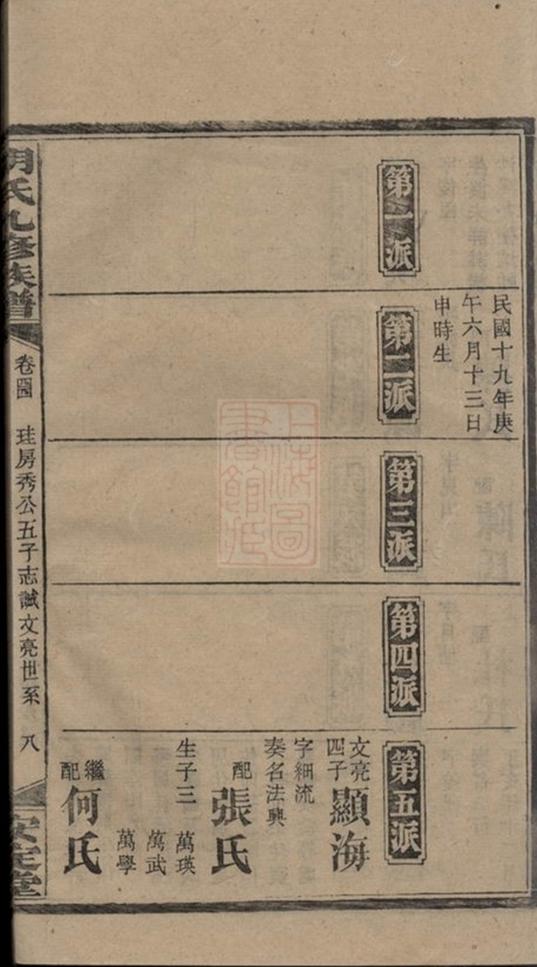 民國十九年庚
午六月十三日
申時生
第一派
第二派
第三派
第四派
第五派
文亮
四子
顯海
字細流
奏名法興
配
張氏
生子三
萬瑛
萬武
萬學
繼
配
何氏
胡氏九修族譜
卷
珪房秀公五子志誠文亮世系
八
安定堂
上海圖
書館藏